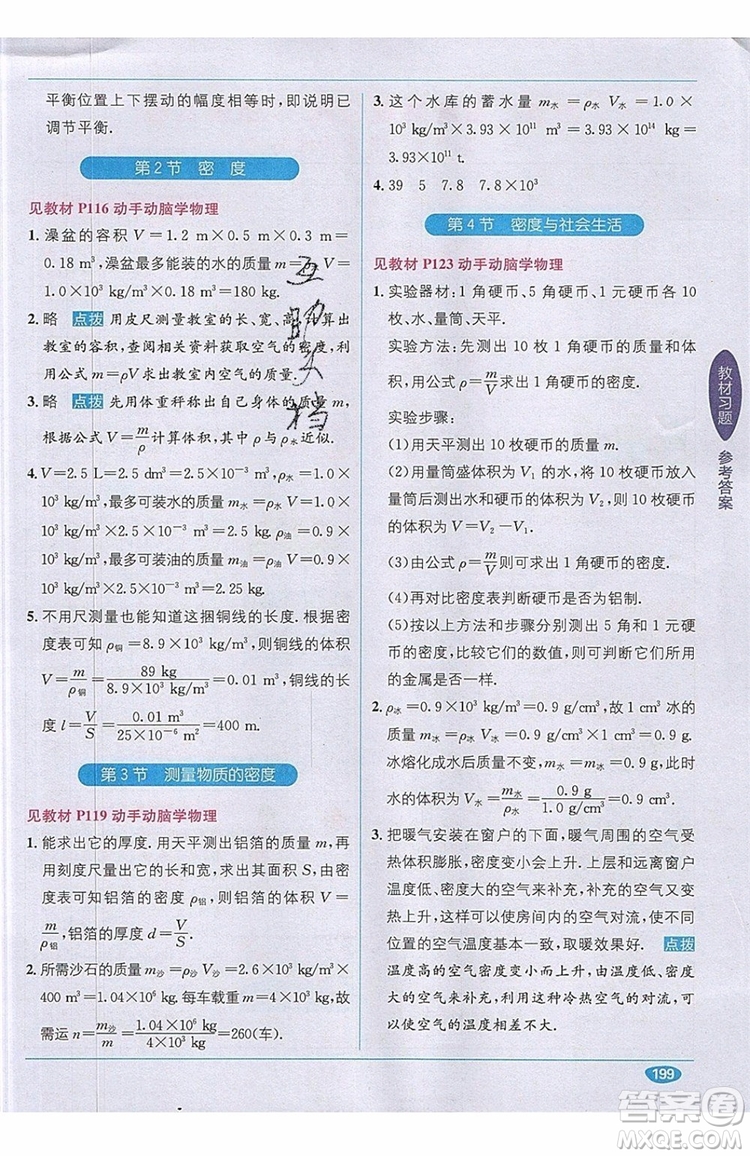 平衡位置上下摆动的幅度相等时,即说明已
调节平衡.
第2节 密 度
见教材 P116 动手动脑学物理
1. 澡盆的容积 V=1.2 m×0.5 m×0.3 m=
0.18 m³,澡盆最多能装的水的质量 m=ρV=
1.0×10³ kg/m³×0.18 m³=180 kg.
2. 略 点拨 用皮尺测量教室的长、宽、高,计算出
教室的容积,查阅相关资料获取空气的密度,利
用公式 m=ρV 求出教室内空气的质量.
3. 略 点拨 先用体重秤称出自己身体的质量 m,
根据公式 V=m/ρ计算体积,ρ与 ρ水 近似.
4. V=2.5 L=2.5 dm³=2.5×10⁻³ m³,ρ水=1.0×
10³ kg/m³,最多可装水的质量 m水=ρ水V=1.0×
10³ kg/m³×2.5×10⁻³ m³=2.5 kg,ρ油=0.9×
10³ kg/m³,最多可装油的质量 m油=ρ油V=0.9×
10³ kg/m³×2.5×10⁻³ m³=2.25 kg.
5. 不用尺测量也能知道这捆铜线的长度.根据密
度表可知 ρ铜=8.9×10³ kg/m³,则铜线的体积
V=m/ρ铜=89 kg/(8.9×10³ kg/m³)=0.01 m³,铜线的长
度 l=V/S=0.01 m³/(25×10⁻⁶ m²)=400 m.
第3节 测量物质的密度
见教材 P119 动手动脑学物理
1. 能求出它的厚度.用天平测出铝箔的质量 m,再
用刻度尺测量出它的长和宽,求出其面积 S,根
据密度表可知铝箔的密度 ρ铝,则铝箔的体积 V=
m/ρ铝,铝箔的厚度 d=V/S.
2. 所需沙石的质量 m沙=ρ沙V=2.6×10³ kg/m³×
400 m³=1.04×10⁶ kg.每车载重量 m=4 t,故
需运 n=m沙/m=1.04×10⁶ kg/(4×10³ kg)=260(车).
3. 这个水库的蓄水量 m水=ρ水V水=1.0×
10³ kg/m³×3.93×10¹¹ m³=3.93×10¹⁴ kg=
3.93×10¹¹ t.
4. 39 5 7.8 7.8×10³
第4节 密度与社会生活
见教材 P123 动手动脑学物理
1. 实验器材:1 角硬币、5 角硬币、1 元硬币各 10
枚、水、量筒、天平.
实验方法:先测出 10 枚 1 角硬币的质量和体
积,再根据公式 ρ=m/V求出密度.
实验步骤:
(1)用天平测出 10 枚硬币的质量 m.
(2)用量筒盛体积为 V₁ 的水,将 10 枚硬币放入
量筒中,测出水和硬币的体积为 V₂,则 10 枚硬
币的体积为 V=V₂-V₁.
(3)由公式 ρ=m/V,可求出 1 角硬币的密度.
(4)再对比密度表判断硬币是否为铝制.
(5)按以上方法和步骤分别测出 5 角和 1 元硬
币的密度,比较它们的数值,则可判断它们所用
的金属是否一样.
2. ρ冰=0.9×10³ kg/m³=0.9 g/cm³,故 1 cm³ 冰的
质量 m冰=ρ冰V冰=0.9 g/cm³×1 cm³=0.9 g.
冰熔化成水后质量不变,m水=m冰=0.9 g,
V水=m水/ρ水=0.9 g/(1.0 g/cm³)=0.9 cm³.
3. 把暖气安装在窗户的下面,暖气周围的空气受
热体积膨胀,密度变小会上升.上升后远离窗户
温度低、密度大的空气来补充,补充的空气又受
热上升,这样可以使房间内的空气对流,使不同
位置的空气温度基本一致,取暖效果好. 点拨
温度高的空气密度小、会上升,温度低、密度大
的空气来补充,利用这种冷热空气的对流,可以
使空气的温度相差不大.
教材习题
参考答案
互助文档
199
答案圈
MXQE.COM